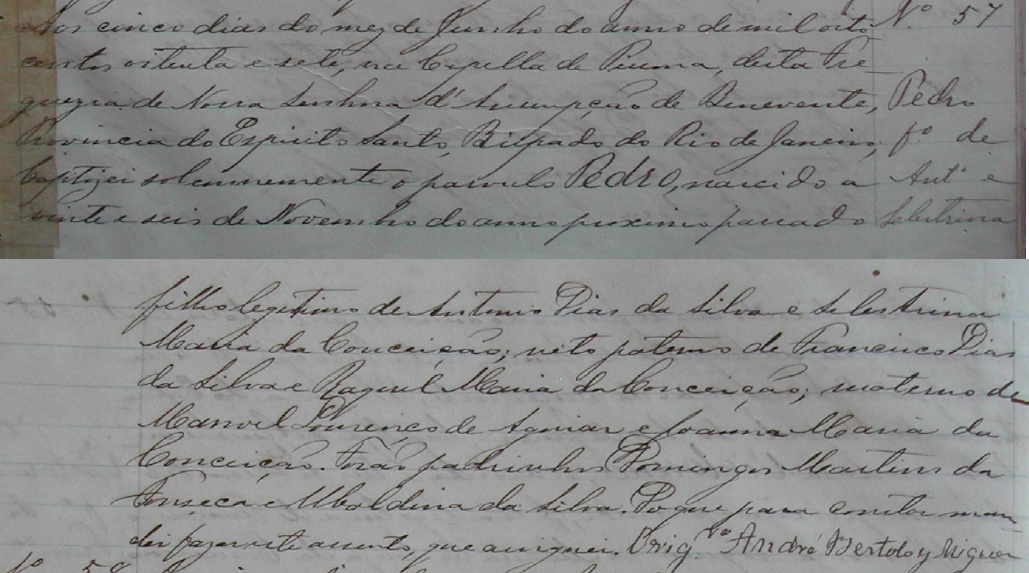 Aos cinco dias do mez de Junho do anno de mil oito Nº 57
centos oitenta e sete, na Capella de Piuma, desta Fre
guezia de Nossa Senhora d'Assumpção de Benevente, Pedro
Provincia do Espirito Santo, Bispado do Rio de Janeiro, fº de
baptizei solemnemente o parvulo Pedro, nascido a Antº e
vinte e seis de Novembro do anno proximo passado Selestrina
filho legitimo de Antonio Dias da Silva e Selestrina
Maria da Conceição; neto paterno de Francisco Dias
da Silva e Raquel Maria da Conceição; materno de
Manoel Lourenco de Aguiar e Joanna Maria da
Conceição. Forão padrinhos Domingos Martins da
Fonseca e Ubaldina da Silva. Do que para constar man
dei fazer este assento, que assignei. O vigrº André Bertolo y Miguer
Nº 58